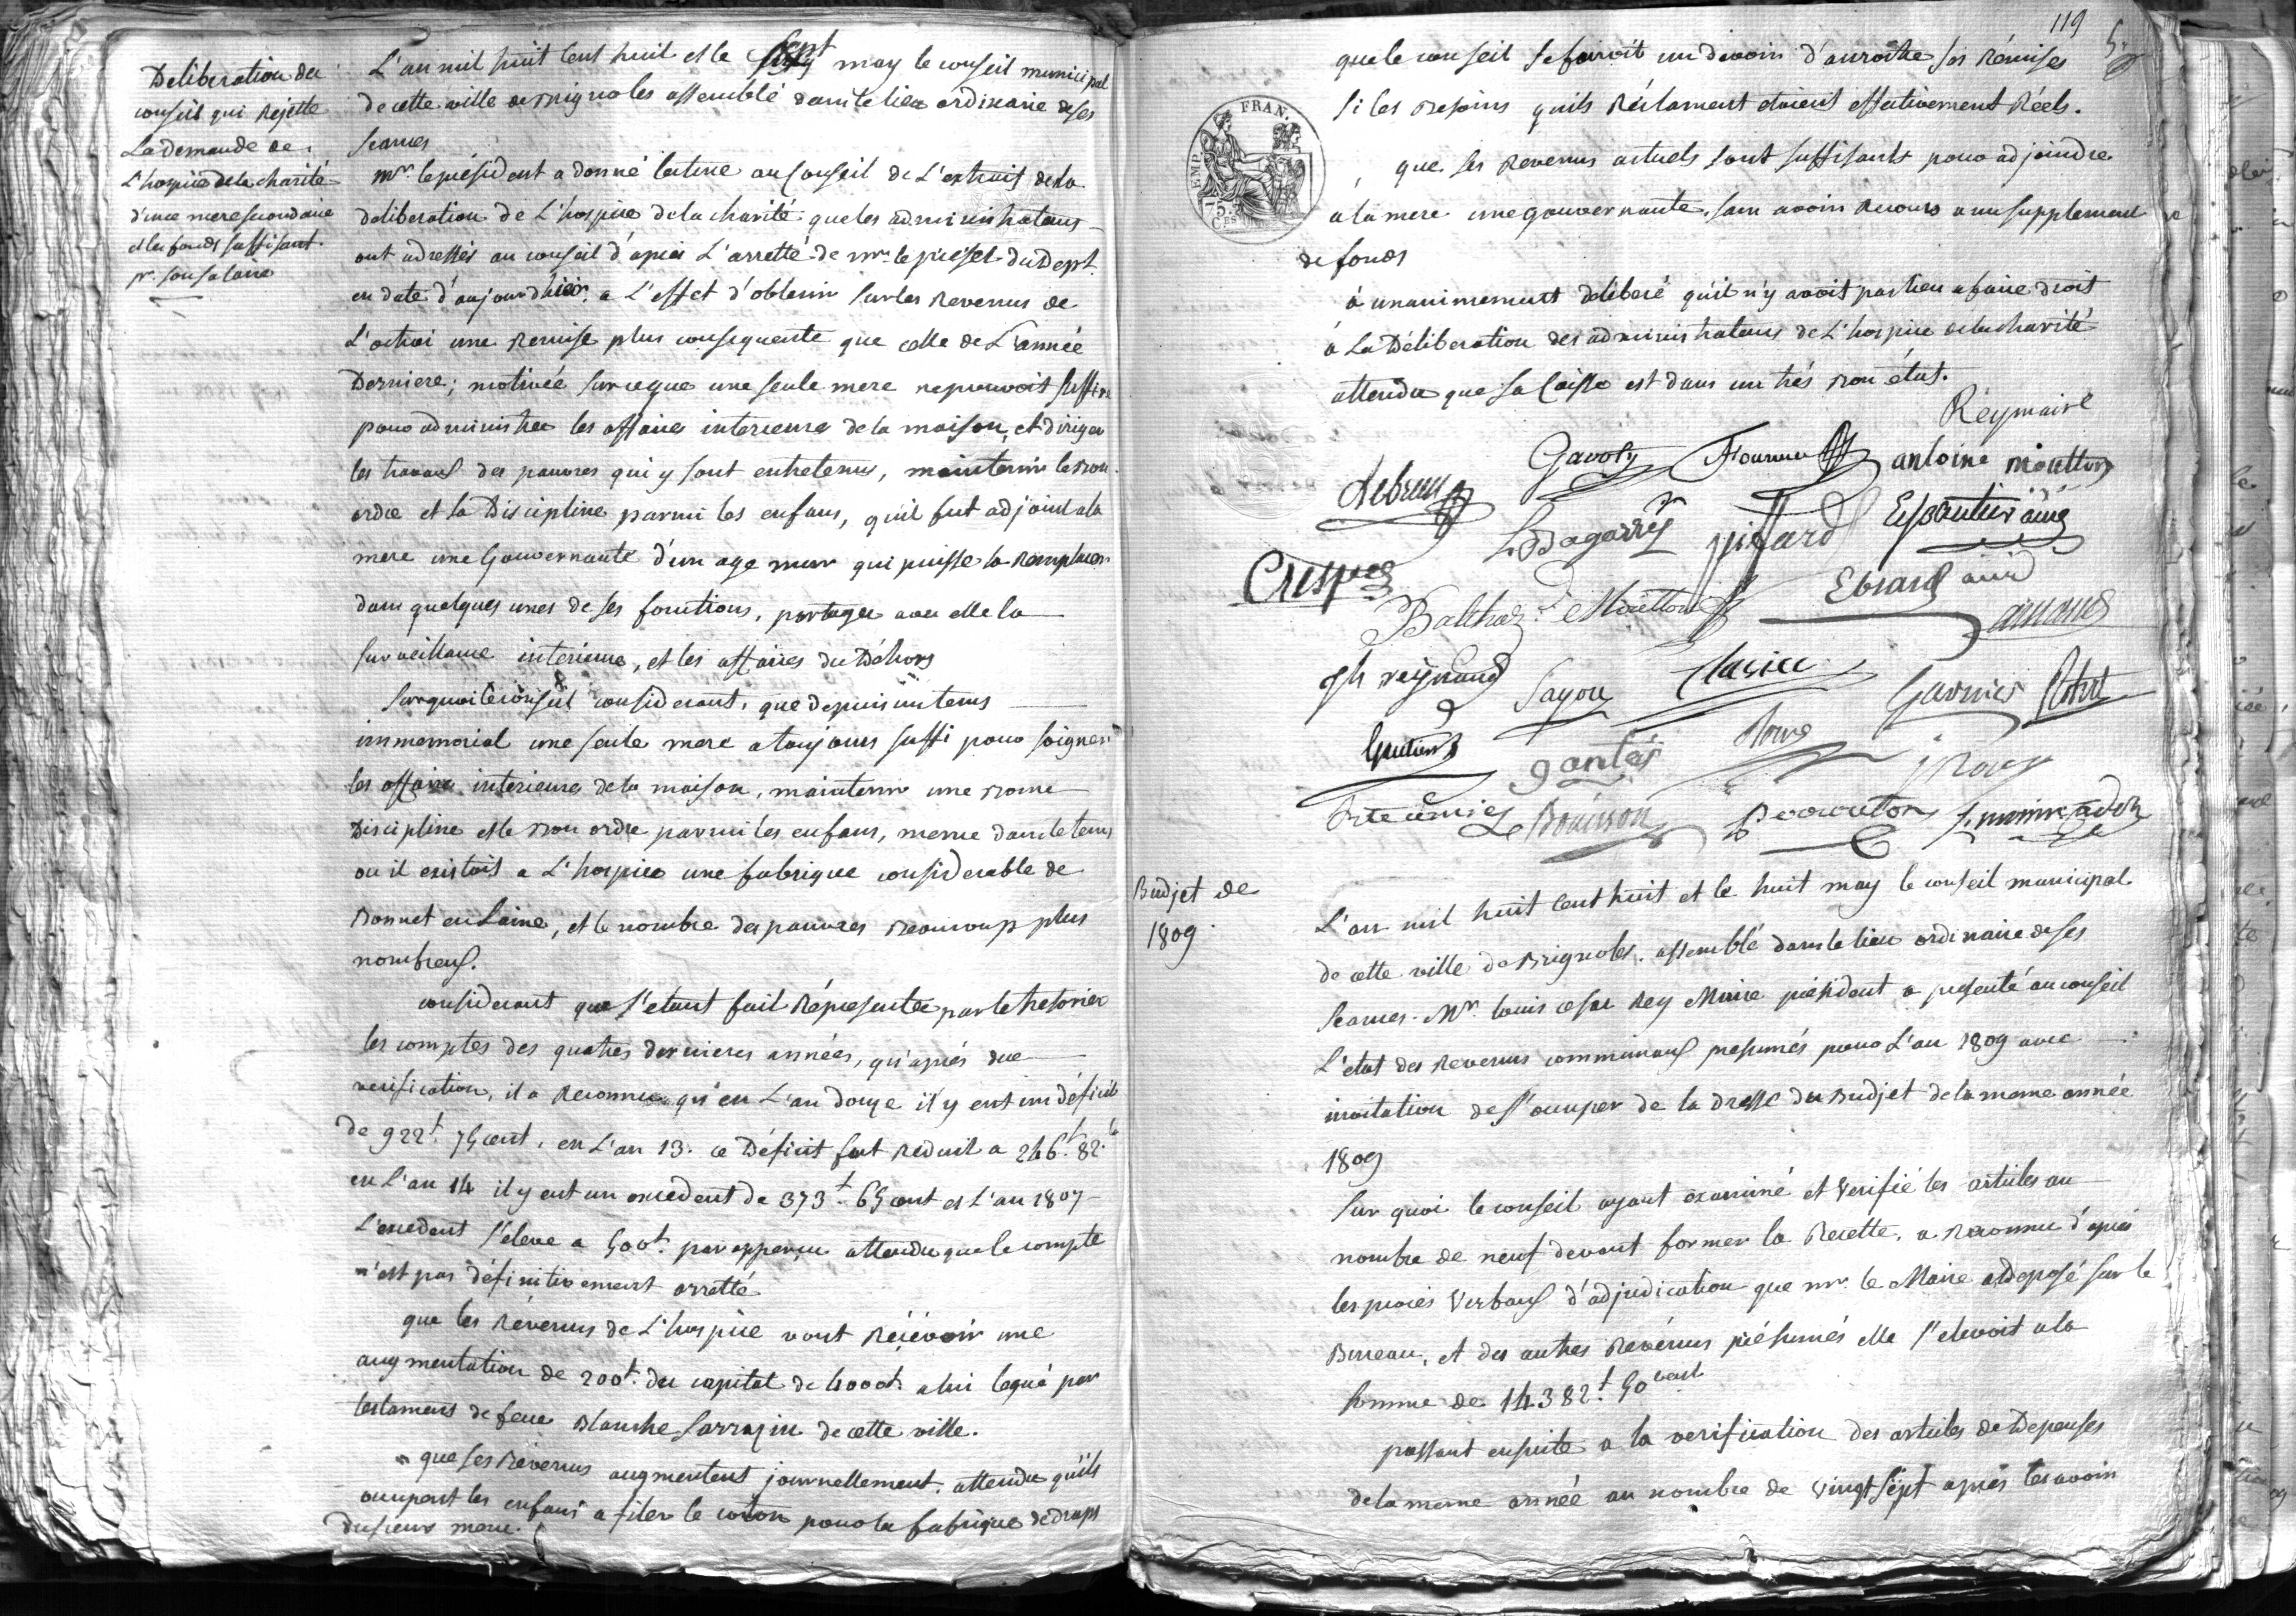 Deliberation du
conseil qui Rejette
La demande de
L'hospice de la charité
d'une mere secondaire
et les fonds suffisant
pr. son salaire
L'an mil huit cent huit et le sept may le conseil municipal
de cette ville de Brignoles assemblé dans le lieu ordinaire de ses
seances
mr. le président a donné lecture au conseil de L'extrait de la
deliberation de L'hospice de la charité que les administrateurs
ont adressés au conseil d'après L'arretté de mr. le préfet du Dept.
en date d'aujourdhier, a L'effet d'obtenir sur les Revenus de
L'octroi une Remise plus consequente que celle de L'année
Derniere; motivée sur ce que une seule mere ne pouvoit suffire
pour administrer les affaires interieures de la maison, et diriger
les travaux des pauvres qui y sont entretenus, maintenir le bon
ordre et la Discipline parmi les enfans, qu'il fut adjoint a la
mere une Gouvernante d'un age mur qui puisse la Remplacer
dans quelques unes de ses fonctions, partager avec elle la
surveillance interieure, et les affaires du Déhors
Sur quoi le conseil considerant, que depuis un tems
immemorial une seule mere a toujours suffi pour soigner
les affaires interieures de la maison, maintenir une bonne
Discipline et le bon ordre parmi les enfans, meme dans le tems
ou il existoit a L'hospice une fabrique considerable de
Bonnet en Laine, et le nombre des pauvres beaucoup plus
nombreux.
considerant que s'etant fait Répresenter par le tresorier
les comptes des quatres dernieres années, qu'après due
verification, il a Reconnu qu'en L'an douze il y eut un déficit
de 922t. 75 cent. en L'an 13. ce Déficit fut reduit a 246t. 82.c
en L'an 14 il y eut un excedent de 373t. 65 cent et L'an 1807
L'excedent s'eleve a 500t. par apperçu attendu que le compte
n'est pas définitivement arretté
que les Révenus de L'hospice vont Récévoir une
augmentation de 200t. du capital de 4000t. a lui legué par
testament de feue Blanche Sarrazin de cette ville.
que ses Révenus augmentent journellement, attendu qu'ils
occupent les enfans a filer le coton pour la fabrique de draps
du sieur mere.
119
que le conseil se fairoit un devoir d'accroitre ses Rémises
si les besoins qu'ils Réclament etoient effectivement Réels.
que ses Revenus actuels sont suffisants pour adjoindre
a la mere une gouvernante, sans avoir Recours a un supplement
de fonds
à unanimement déliberé qu'il n'y avoit pas lieu a faire droit
à La Déliberation des administrateurs de L'hospice de la charité
attendu que sa Caisse est dans un très bon état.
Rey maire
Gavoty antoine moutton
Lebrun
L Bagarry piffard Espautier ainé
Crespin
Balthaz.d Moutton Ebrard ainé
arnaud
jh reynaud Fayou Clavier
Garnier
Gautier gantés
Bouisson
EMP. FRAN.
75 CES.
Budjet de
1809
L'an mil huit cent huit et le huit may le conseil municipal
de cette ville de Brignoles, assemblé dans le lieu ordinaire de ses
seances. Mr. Louis cesar Rey Maire président a presenté au conseil
L'etat des Revenus communaux presumés pour L'an 1809 avec
invitation de s'occuper de la dresse du Budjet de la meme année
1809
Sur quoi le conseil ayant éxaminé et Verifié les articles au
nombre de neuf devant former la Recette, a reconnu d'après
les procès Verbaux d'adjudication que mr. le Maire a Déposé sur le
Bureau, et des autres Revénus présumés elle s'elevoit a la
somme de 14382t. 50 cent
passant ensuite a la verification des articles de Dépenses
de la meme année au nombre de vingt sept après les avoir